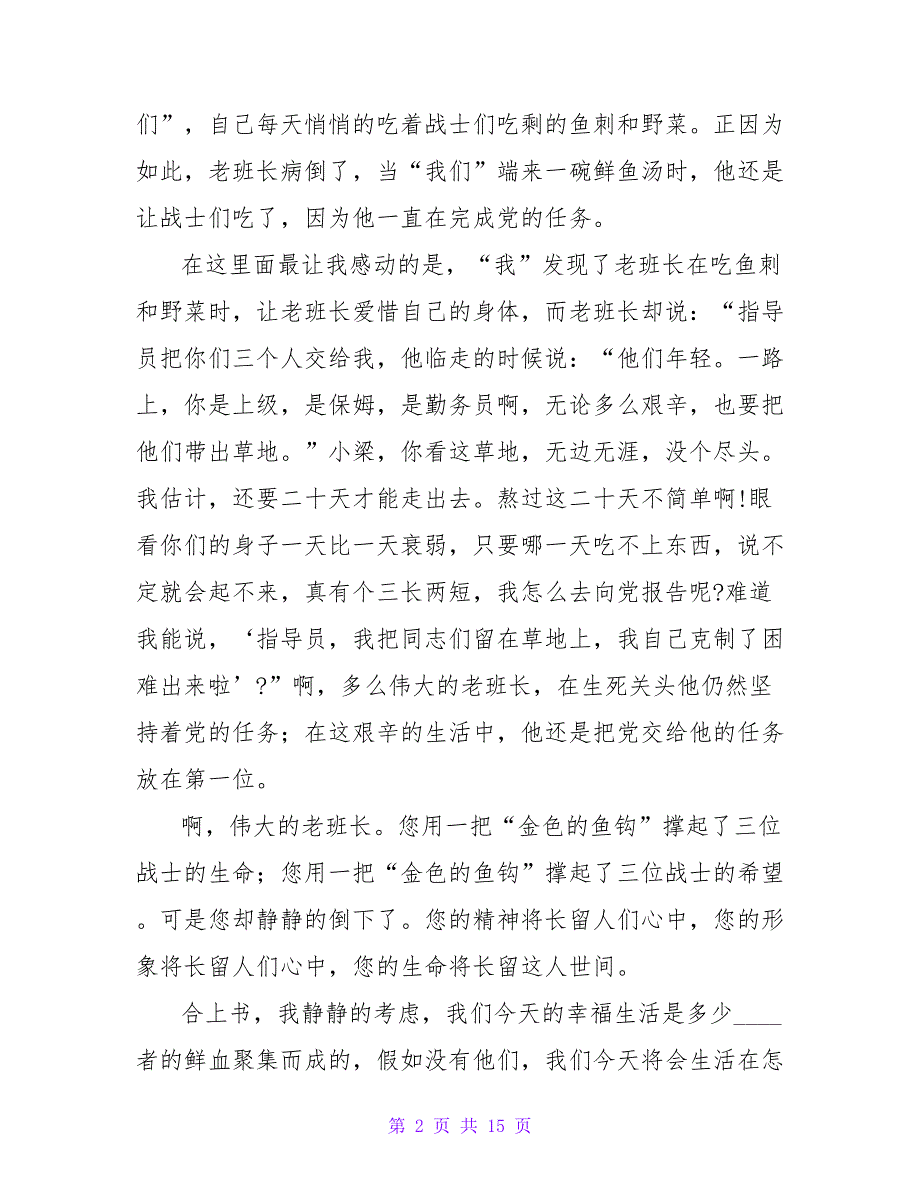 们”，自己每天悄悄的吃着战士们吃剩的鱼刺和野菜。正因为
如此，老班长病倒了，当“我们”端来一碗鲜鱼汤时，他还是
让战士们吃了，因为他一直在完成党的任务。
在这里面最让我感动的是，“我”发现了老班长在吃鱼刺
和野菜时，让老班长爱惜自己的身体，而老班长却说：“指导
员把你们三个人交给我，他临走的时候说：“他们年轻。一路
上，你是上级，是保姆，是勤务员啊，无论多么艰辛，也要把
他们带出草地。”小梁，你看这草地，无边无涯，没个尽头。
我估计，还要二十天才能走出去。熬过这二十天不简单啊!眼
看你们的身子一天比一天衰弱，只要哪一天吃不上东西，说不
定就会起不来，真有个三长两短，我怎么去向党报告呢?难道
我能说，‘指导员，我把同志们留在草地上，我自己克制了困
难出来啦’?”啊，多么伟大的老班长，在生死关头他仍然坚
持着党的任务；在这艰辛的生活中，他还是把党交给他的任务
放在第一位。
啊，伟大的老班长。您用一把“金色的鱼钩”撑起了三位
战士的生命；您用一把“金色的鱼钩”撑起了三位战士的希望
。可是您却静静的倒下了。您的精神将长留人们心中，您的形
象将长留人们心中，您的生命将长留这人世间。
合上书，我静静的考虑，我们今天的幸福生活是多少____
者的鲜血聚集而成的，假如没有他们，我们今天将会生活在怎
第 2 页 共 15 页